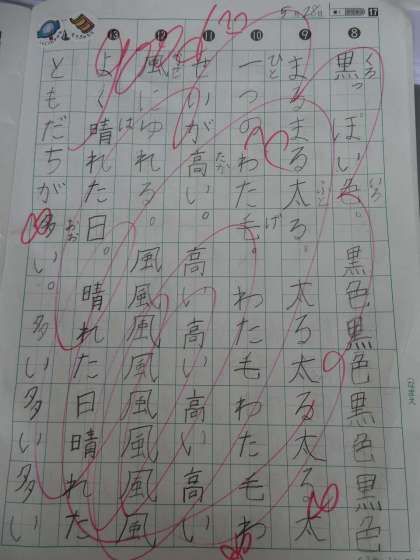 17
5/28
8 9 10 11 12 13
黒っぽい色。黒色黒色黒色黒色
くろ いろ
まるまる太る。太る太る太る太
ふと
一つのわた毛。わた毛わた毛わ
ひと げ
せいが高い。高い高い高い高い
たか
風にゆれる。風風風風風風風風
かぜ
よく晴れた日。晴れた日晴れた
は
ともだちが多い。多い多い多い
おお